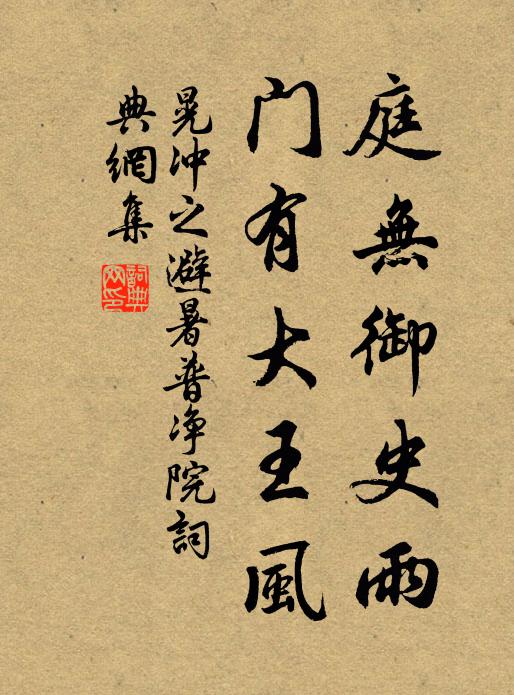 庭無御史雨
門有大王風
晁冲之避暑普净院詞
典網集
詞典网印